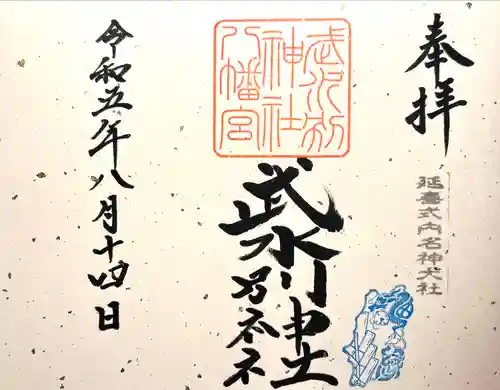 奉拝
延喜式内名神大社
武水別
神社
八幡宮
武水別神社
令和五年八月十四日